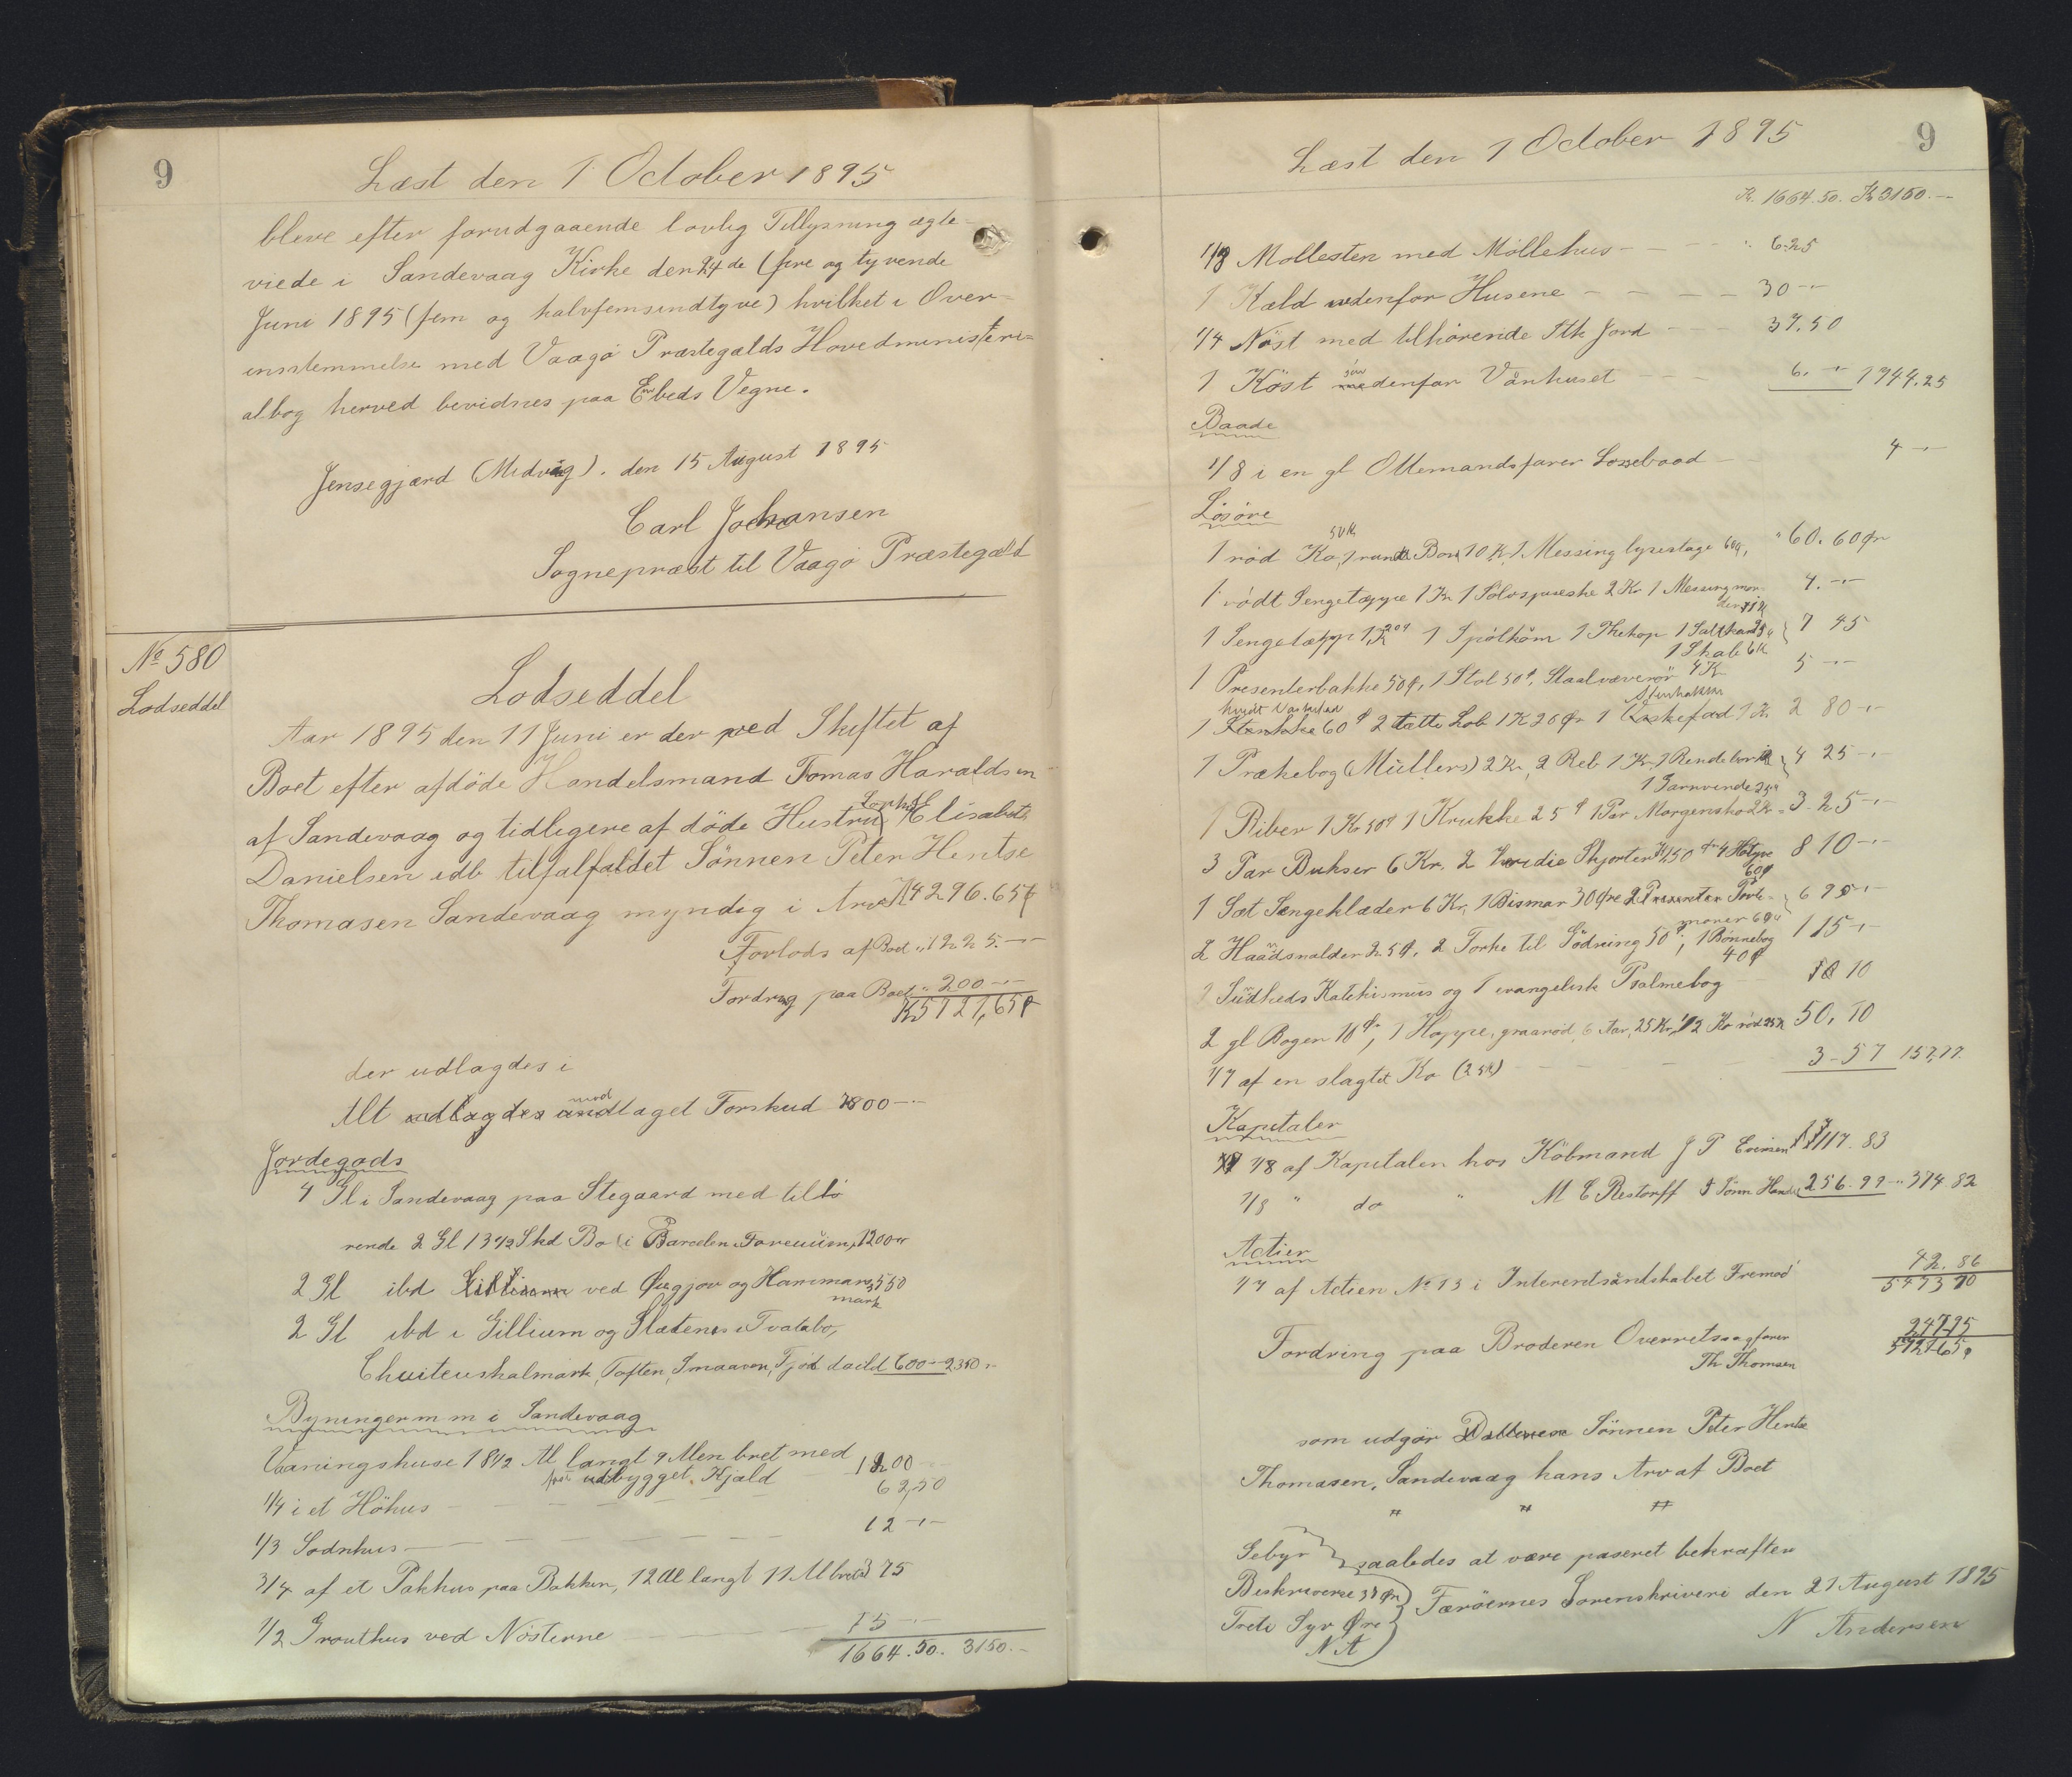 9
Læst den 1 October 1895
bleve efter forudgaaende lovlig Tillysning ægte-
viede i Sandevaag Kirke den 24de (fire og tyvende
Juni 1895 (fem og halvfemsindtyve) hvilket i Over-
ensstemmelse med Vaagö Præstegælds Hovedministeri=
albog herved bevidnes paa Embeds Vegne.
Jensegjærd (Midvaag). den 15 August 1895
Carl Jochansen
Sognepræst til Vaagö Præstegæld
No 580
Lodseddel
Lodseddel
Aar 1895 den 11 Juni er der ved Skiftet af
Boet efter afdöde Handelsmand Tomas Haraldsen
af Sandevaag og tidligere afdöde Hustru Sophie Elisabeth
Danielsen idb tilfalfaldet Sönnen Peter Hentse
Thomasen Sandevaag myndig i Arv K 4296.65
Forlods af Boet " 1225.--
Fordring paa Boet " 200--
K 5721,65
der udlagdes i
Alt udlagdes modtaget Forskud 800--
Jordegods
4 Gl i Sandevaag paa Stegaard med tilhö
rende 2 Gl 13 1/2 Skd Bo i Parcelen 1200
2 Gl ibd ved og Hammans 550
mark
2 Gl ibd i Gillium og Slatenes i Tvatabo,
Toften, Smaaven, 600 - 2350 -
Byninger m m i Sandevaag
Vaaningshuse 18 1/2 Al langt 9 Alen bret med
udbygget Kjæld 1200
1/4 i et Höhus 62,50
1/3 Sodnhus 12 --
3/4 af et Pakhus paa Bakken, 12 Al langt 11 Al bredt 375
1/2 Grouthus ved Nösterne 15 --
1664.50. 3150.-
Læst den 1 October 1895
9
K. 1664.50. K 3150.--
1/8 Mollesten med Möllehus - 6.25
1 Kæld nedenfor Husene - - - - 30 --
1/4 Nöst med tilhörende Stk Jord - - 37.50
1 Köst nedenfor Vånhuset - - 6. -- 1944.25
Baade
1/8 i en gl Ottemandsfarer Lossebaad - 4 --
Lösöre
50 K
1 röd Ko, 1 rundt Bord 10 K, 1 Messing lysestage 60, " 60.60 Ør
1 rödt Sengetæppe 1 Kr 1 Sölvspiseske 2 Kr 1 Messing mor-
4.--
1 Sengetæpp 1 K 1 Spölköm 1 Thekop 1 Saltkar 7 45
1 Skab 6 K
1 Presenterbakke 50, 1 Stol 50, Staalvæverör 4 K 5 --
hvidt Vaskefad
1 60 2 tætte Lob 1 K 20 Ør 1 Vaskefad 1 K 2 80 --
1 Prækebog (Müllers) 2 Kr, 2 Reb 1 Kr, 1 4 25 --
1 Garnvinde
1 Riber 1 Kr 50 1 Krukke 25 1 Par Morgensko 2 K - 3.25 --
3 Par Bukser 6 Kr. 2 Skjorter 1,50 8 10 --
60
1 Sæt Sengeklæder 6 Kr, 1 Bismar 30 Øre 2 6 95 --
2 25, 2 Torke til Gödning 50, 1 Bönnebog 1 15 --
40
1 Katekismus og 1 evangelisk Psalmebog - 10
2 gl Bogen 10, 1 Hoppe, graaröd, 6 Aar, 25 Kr, 1/2 Ko röd 25 K 50,10
1/7 af en slagtet Ko (25 K) - - - - 3-57 157,77
Kapitaler
1/8 af Kapitalen hos Köbmand J P Evensen 117.83
1/8 " do " M C Restorff & Sönn 256.99 - 374 82
Actier
1/7 af Actien No 13 i Interentsåndskabet Fremad 42.86
5473 70
Fordring paa Broderen Overretssagförer 247.95
Th Thomsen 5721 65
som udgör Sönnen Peter Hentse
Thomasen, Sandevaag hans Arv af Boet
" " "
Gebyr saaledes at være paseret bekræfter
Beskriverse 37 Ør Færöernes Sorenskriveri den 21 August 1895
Treti Syv Öre N Andersen
N A